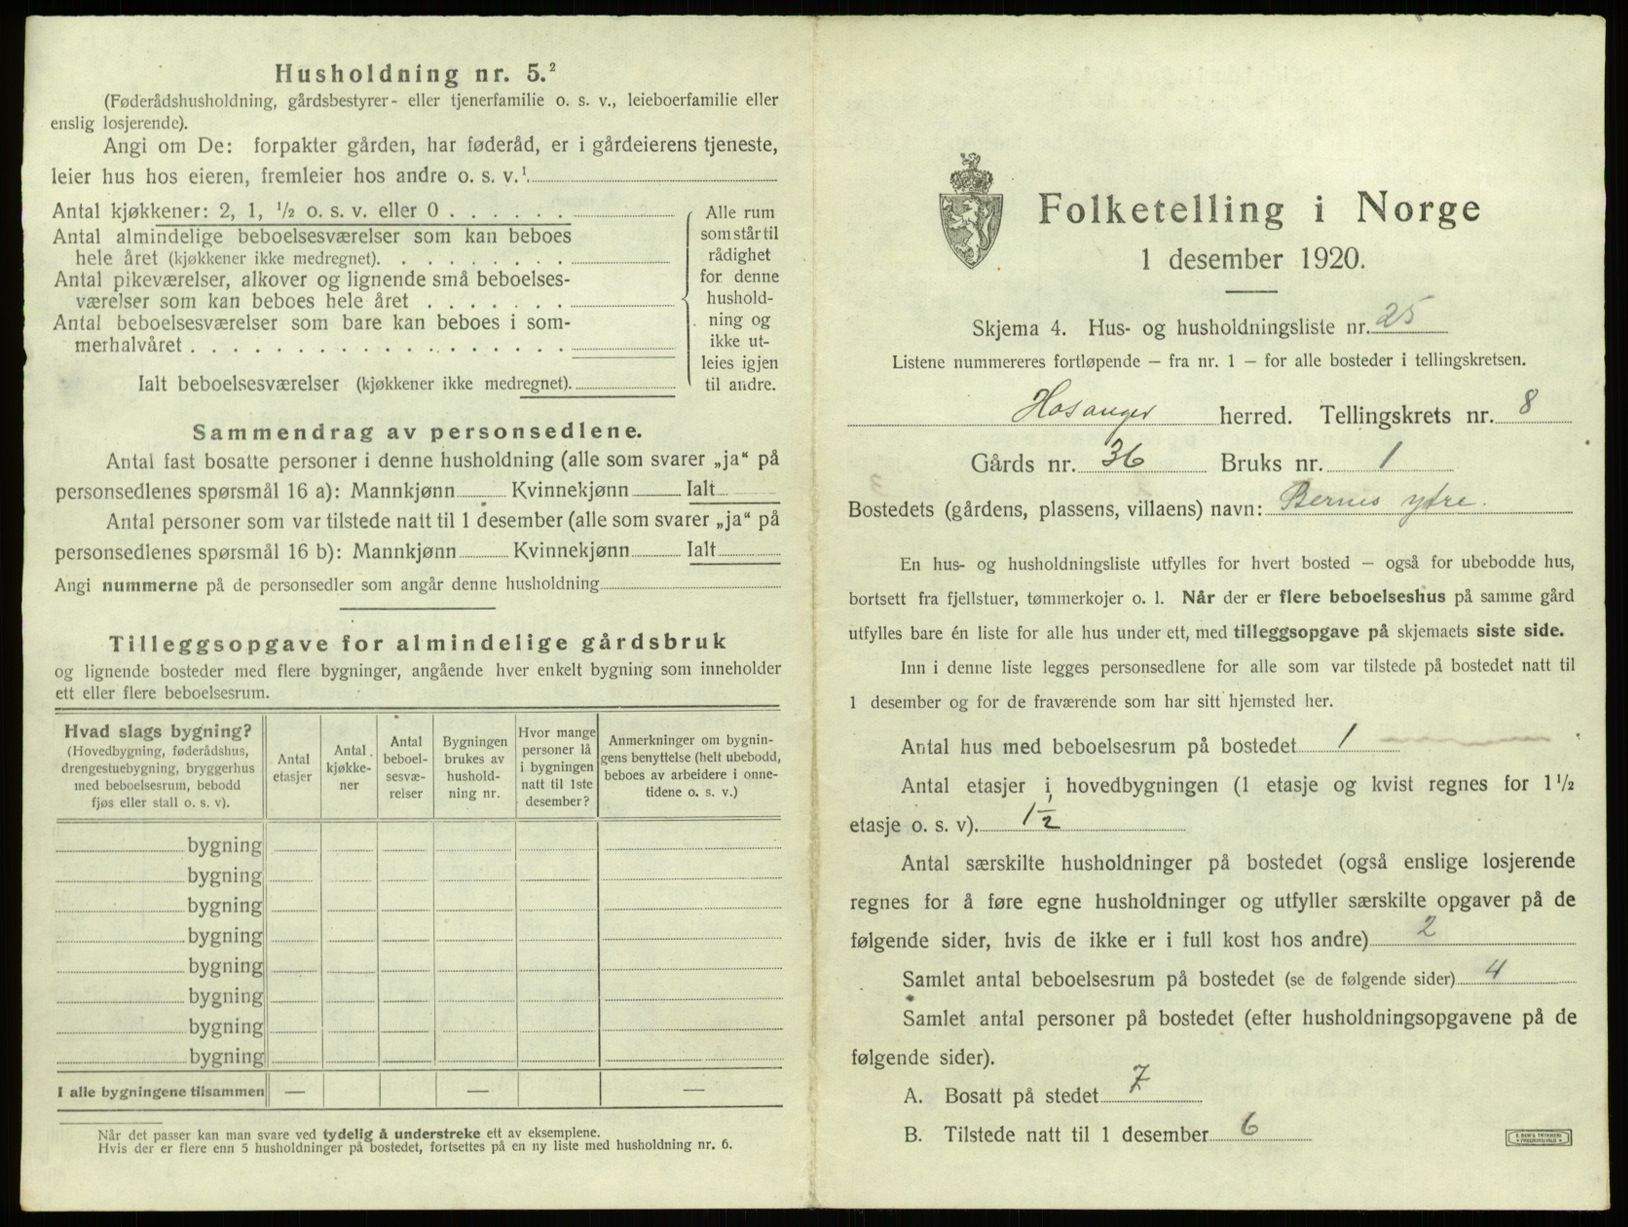 Husholdning nr. 5.²
(Føderådshusholdning, gårdsbestyrer- eller tjenerfamilie o. s. v., leieboerfamilie eller
enslig losjerende).
Angi om De: forpakter gården, har føderåd, er i gårdeierens tjeneste,
leier hus hos eieren, fremleier hos andre o. s. v.¹
Antal kjøkkener: 2, 1, ½ o. s. v. eller 0
Antal almindelige beboelsesværelser som kan beboes
hele året (kjøkkener ikke medregnet).
Antal pikeværelser, alkover og lignende små beboelses-
værelser som kan beboes hele året
Antal beboelsesværelser som bare kan beboes i som-
merhalvåret
Ialt beboelsesværelser (kjøkkener ikke medregnet).
Alle rum
som står til
rådighet
for denne
hushold-
ning og
ikke ut-
leies igjen
til andre.
Sammendrag av personsedlene.
Antal fast bosatte personer i denne husholdning (alle som svarer „ja“ på
personsedlenes spørsmål 16 a): Mannkjønn Kvinnekjønn Ialt
Antal personer som var tilstede natt til 1 desember (alle som svarer „ja“ på
personsedlenes spørsmål 16 b): Mannkjønn Kvinnekjønn Ialt
Angi nummerne på de personsedler som angår denne husholdning
Tilleggsopgave for almindelige gårdsbruk
og lignende bosteder med flere bygninger, angående hver enkelt bygning som inneholder
ett eller flere beboelsesrum.
Hvad slags bygning?
(Hovedbygning, føderådshus,
drengestuebygning, bryggerhus
med beboelsesrum, bebodd
fjøs eller stall o. s. v).
Antal
etasjer
Antal
kjøkke-
ner
Antal
beboel-
sesvæ-
relser
Bygningen
brukes av
hushold-
ning nr.
Hvor mange
personer lå
i bygningen
natt til 1ste
desember?
Anmerkninger om bygnin-
gens benyttelse (helt ubebodd,
beboes av arbeidere i onne-
tidene o. s. v.)
bygning
bygning
bygning
bygning
bygning
bygning
bygning
bygning
I alle bygningene tilsammen — — —
Når det passer kan man svare ved tydelig å understreke ett av eksemplene.
Hvis der er flere enn 5 husholdninger på bostedet, fortsettes på en ny liste med husholdning nr. 6.
Folketelling i Norge
1 desember 1920.
Skjema 4. Hus- og husholdningsliste nr. 25
Listene nummereres fortløpende — fra nr. 1 — for alle bosteder i tellingskretsen.
Hosanger herred. Tellingskrets nr. 8
Gårds nr. 36 Bruks nr. 1
Bostedets (gårdens, plassens, villaens) navn: Bernes ytre.
En hus- og husholdningsliste utfylles for hvert bosted — også for ubebodde hus,
bortsett fra fjellstuer, tømmerkojer o. l. Når der er flere beboelseshus på samme gård
utfylles bare én liste for alle hus under ett, med tilleggsopgave på skjemaets siste side.
Inn i denne liste legges personsedlene for alle som var tilstede på bostedet natt til
1 desember og for de fraværende som har sitt hjemsted her.
Antal hus med beboelsesrum på bostedet 1
Antal etasjer i hovedbygningen (1 etasje og kvist regnes for 1½
etasje o. s. v). 1½
Antal særskilte husholdninger på bostedet (også enslige losjerende
regnes for å føre egne husholdninger og utfyller særskilte opgaver på de
følgende sider, hvis de ikke er i full kost hos andre) 2
Samlet antal beboelsesrum på bostedet (se de følgende sider) 4
Samlet antal personer på bostedet (efter husholdningsopgavene på de
følgende sider).
A. Bosatt på stedet 7
B. Tilstede natt til 1 desember 6